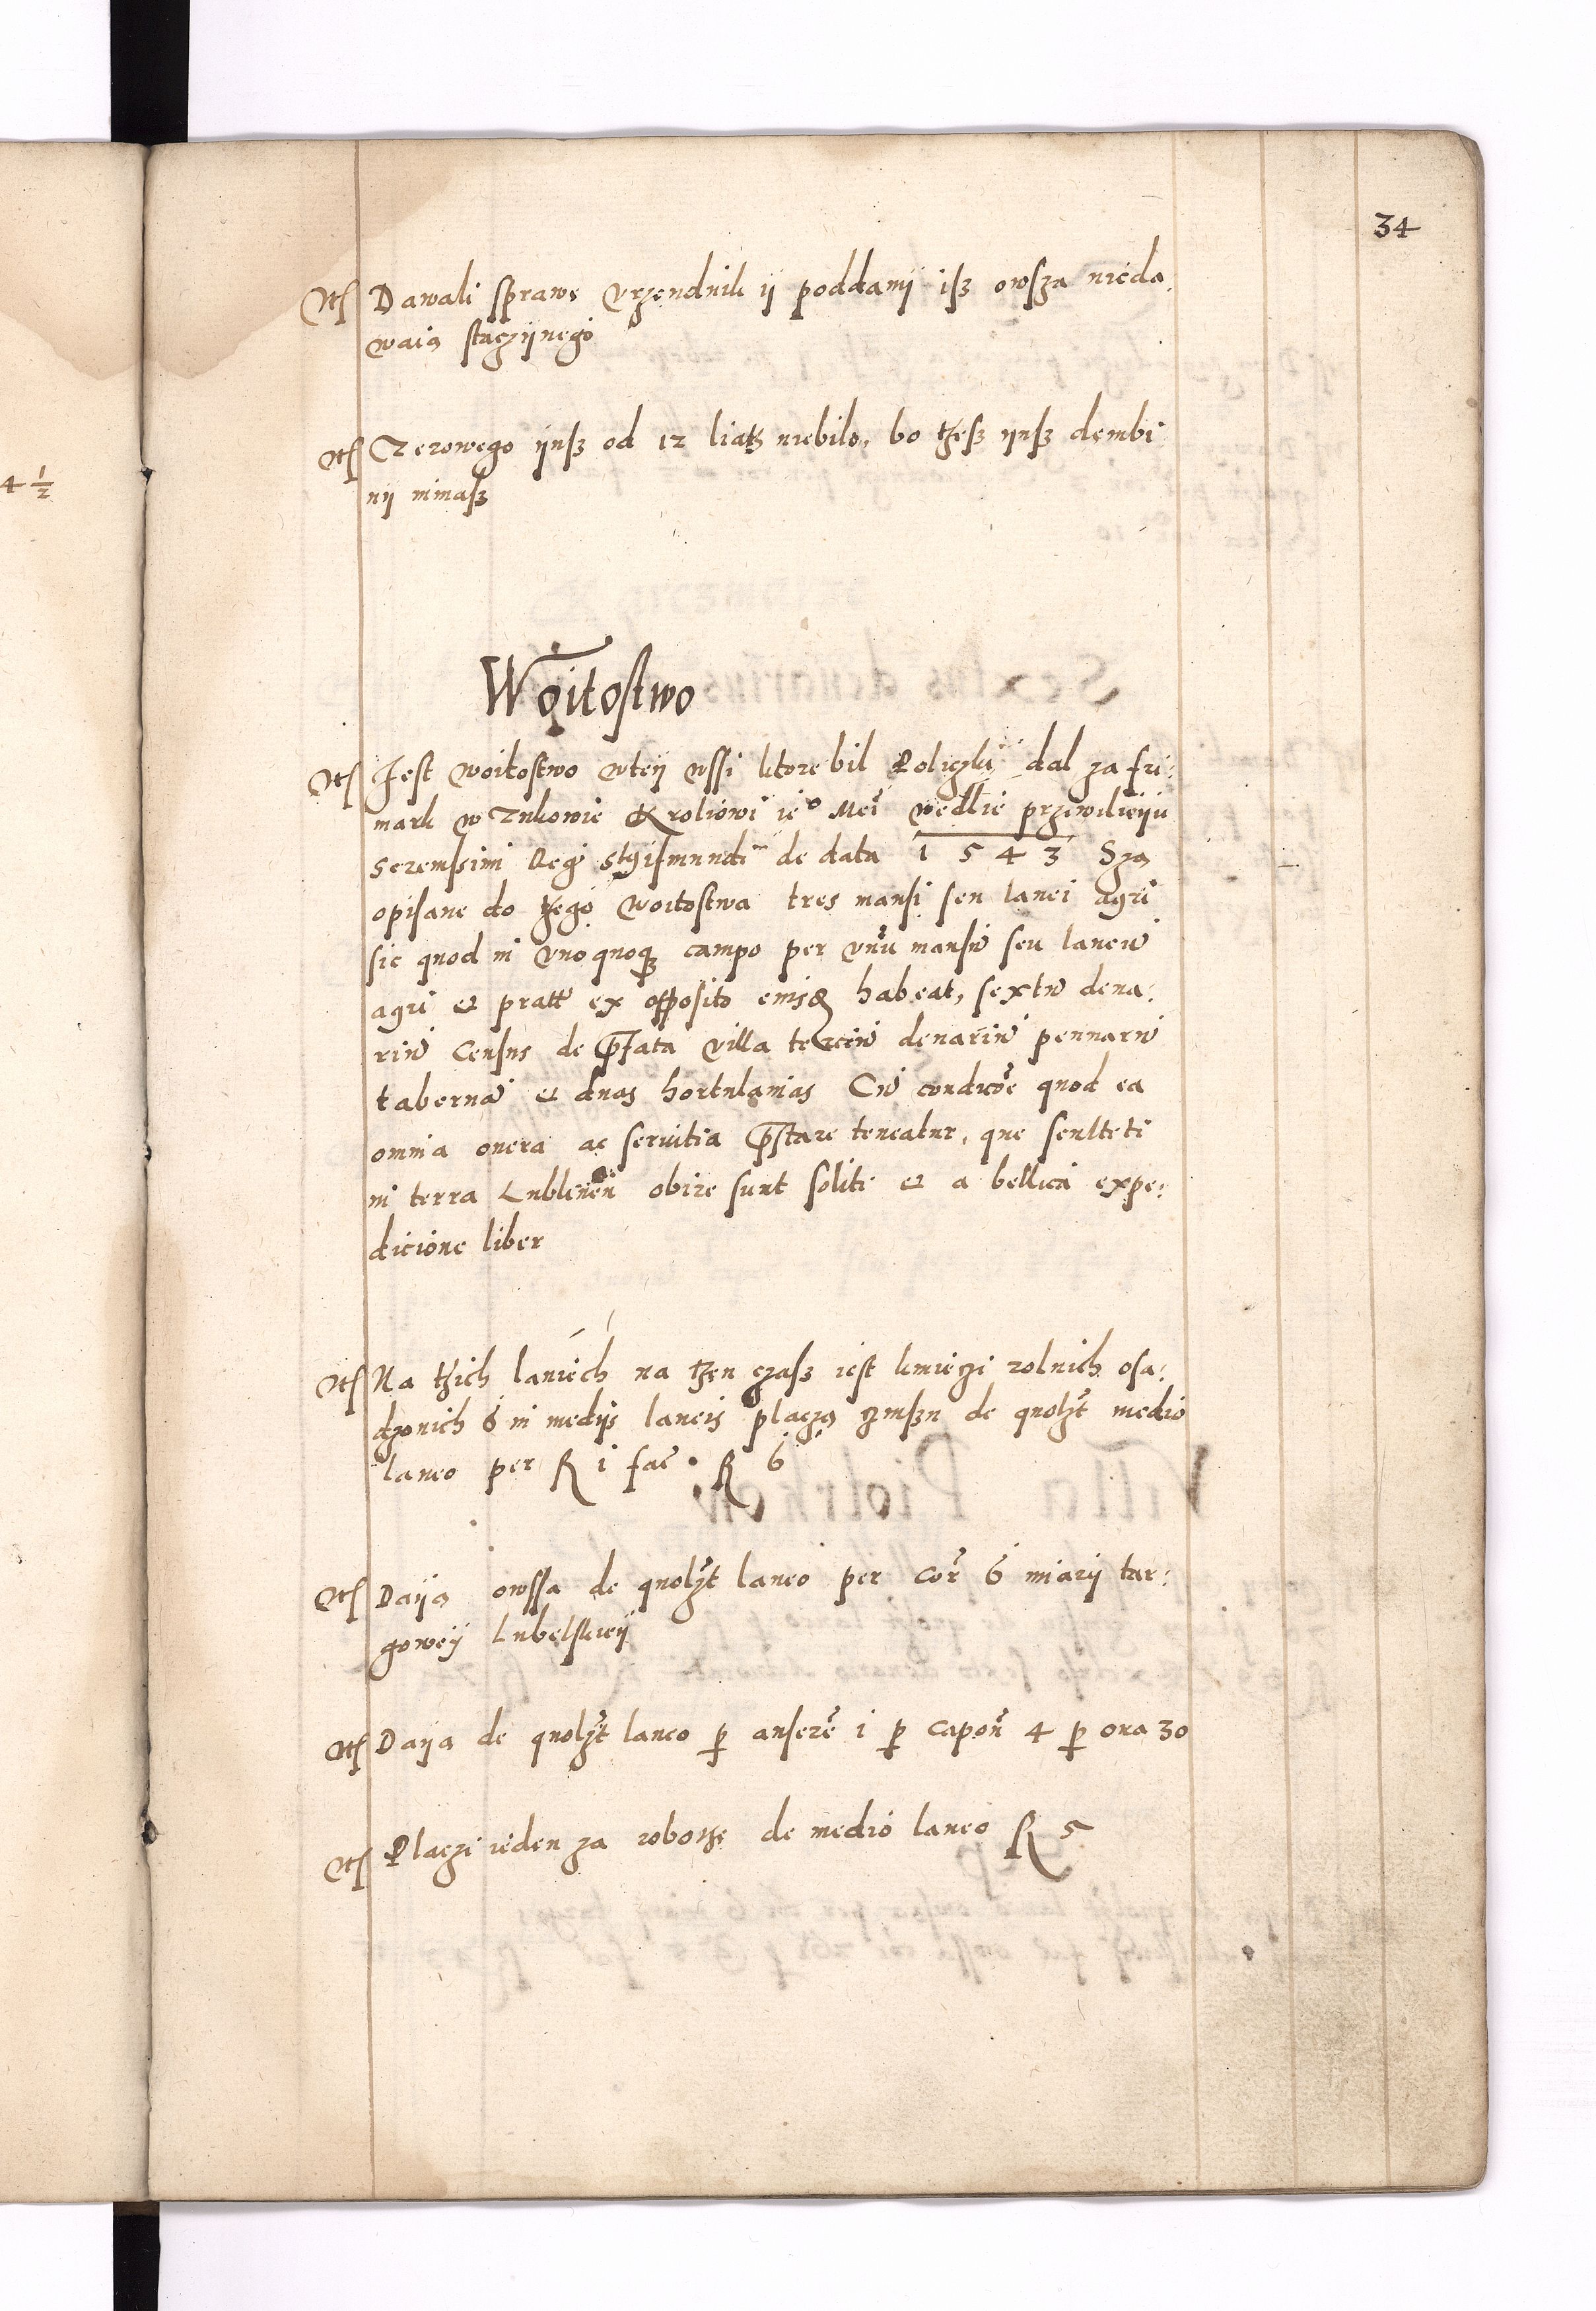 34
Itē Dawali sprawę vrzendnik ij poddanij isz owsza nieda:
waią staczijnego
4 1/2
Itē Zerowego ijusz od 12 liath niebilo, bo thesz ijusz dembi
nij niniasz
Woitostwo
Itē Jest woitostwo wteij wssi ktore bil Policzki dal za fri:
mark w Zukowie Kroliowi ieº Mci wedlie przewilieiju
Serenissimi Regis Sigismundi de data 1543 Szą
opisane do thego woitostwa tres mansi seu lanei agri
sic quod in vnoquoqz campo per vnū mansū seu laneū
agri et pratū ex opposito eiusqz habeat, sextū dena:
riū Census de p̄fata villa terciū denariū pennarū
tabernā et duas hortulanias Cū condicōe quod ea
omnia onera ac seruitia p̄stare teneatur, que sculteti
in terra Lublinēn obire sunt soliti et a bellica expe:
dicione liber
Itē Na thich laniech na then czasz iest kmieczi rolnich osa:
dzonich 6 in medijs laneis placzą czinszu de quolzt medio
laneo per R i fac̄ . R 6
Itē Daiją owssa de quolzt laneo per Cor̄ 6 miarij tar:
goweij Lubelskieij
Itē Daiją de quolzt laneo p anserē i p Capon̄ 4 p oua 30
Itē Placzi ieden za robothę de medio laneo R 5